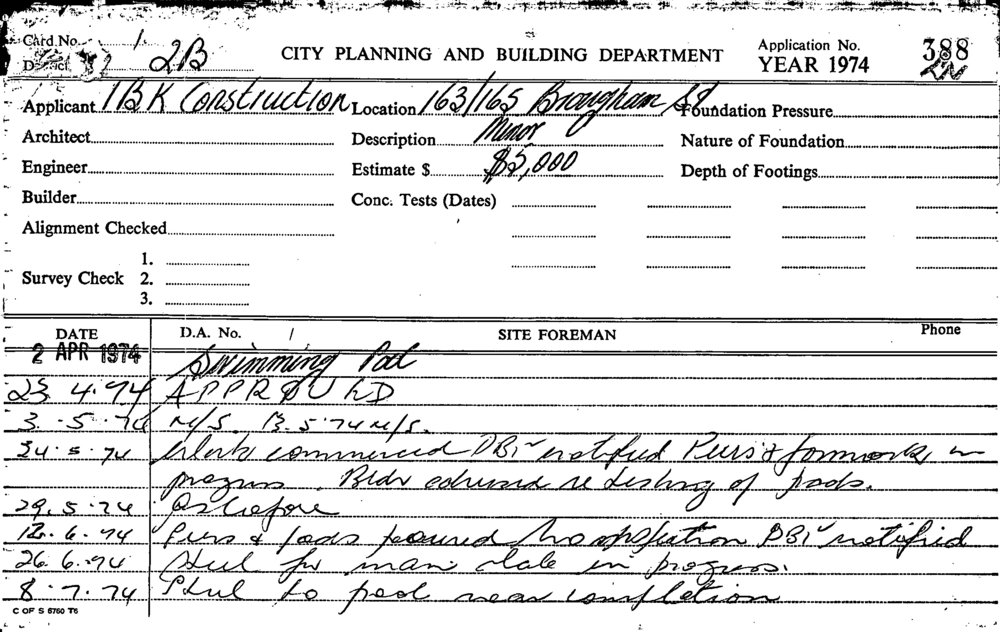 Card No. 1
District 2B
CITY PLANNING AND BUILDING DEPARTMENT
Application No. 388
YEAR 1974
Applicant IBK Construction Location 163/165 Brougham St Foundation Pressure
Architect Description Minor Nature of Foundation
Engineer Estimate $ $5,000 Depth of Footings
Builder Conc. Tests (Dates)
Alignment Checked
Survey Check 1.
2.
3.
DATE D.A. No. / SITE FOREMAN Phone
2 APR 1974 Swimming Pool
23.4.74 APPROVED
3.5.74 N/S. 13.5.74 N/S.
24.5.74 Work commenced DBI notified Piers & formwork in
progress. Bldr advised re testing of pads.
29.5.74 As before
12.6.74 Piers & pads poured No inspection DBI notified
26.6.74 Steel for main slab in progress.
8.7.74 Steel to pool near completion
C OF S 6760 T6